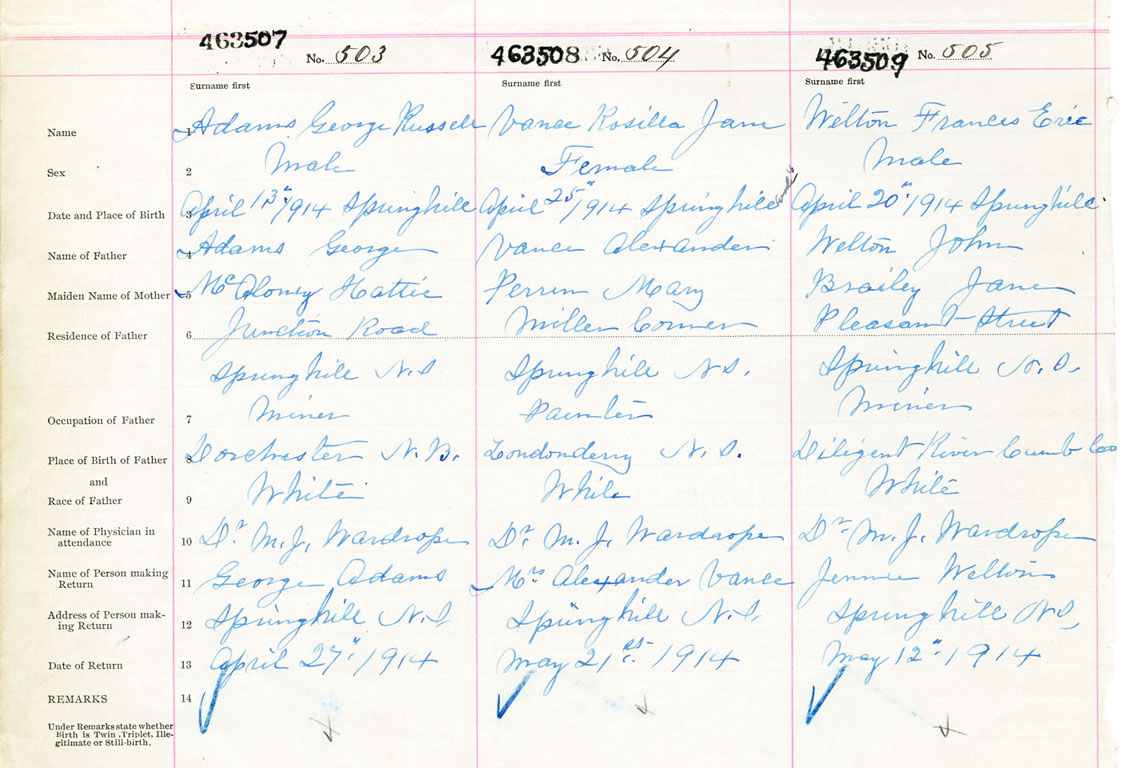 463507 No. 503 463508 No. 504 463509 No. 505
Surname first Surname first Surname first
Name 1 Adams George Russell Vance Rosilla Jane Welton Francis Eric
Sex 2 Male Female Male
Date and Place of Birth 3 April 13"/1914 Springhill April 25"/1914 Springhill April 20"/1914 Springhill
Name of Father 4 Adams George Vance Alexander Welton John
Maiden Name of Mother 5 McAloney Hattie Perrin Mary Brailey Jane
Residence of Father 6 Junction Road Miller Corner Pleasant Street
Springhill N.S Springhill N.S. Springhill N.S.
Occupation of Father 7 Miner Painter Miner
Place of Birth of Father 8 Dorchester N.B. Londonderry N.S. Diligent River Cumb Co
and
Race of Father 9 White White White
Name of Physician in
attendance 10 Dr M.J. Wardrope Dr. M.J. Wardrope Dr M.J. Wardrope
Name of Person making
Return 11 George Adams Mrs Alexander Vance Jennie Welton
Address of Person mak-
ing Return 12 Springhill N.S. Springhill N.S. Springhill N.S.
Date of Return 13 April 27"/1914 May 21st. 1914 May 12" 1914
REMARKS 14
Under Remarks state whether
Birth is Twin, Triplet, Ille-
gitimate or Still-birth.